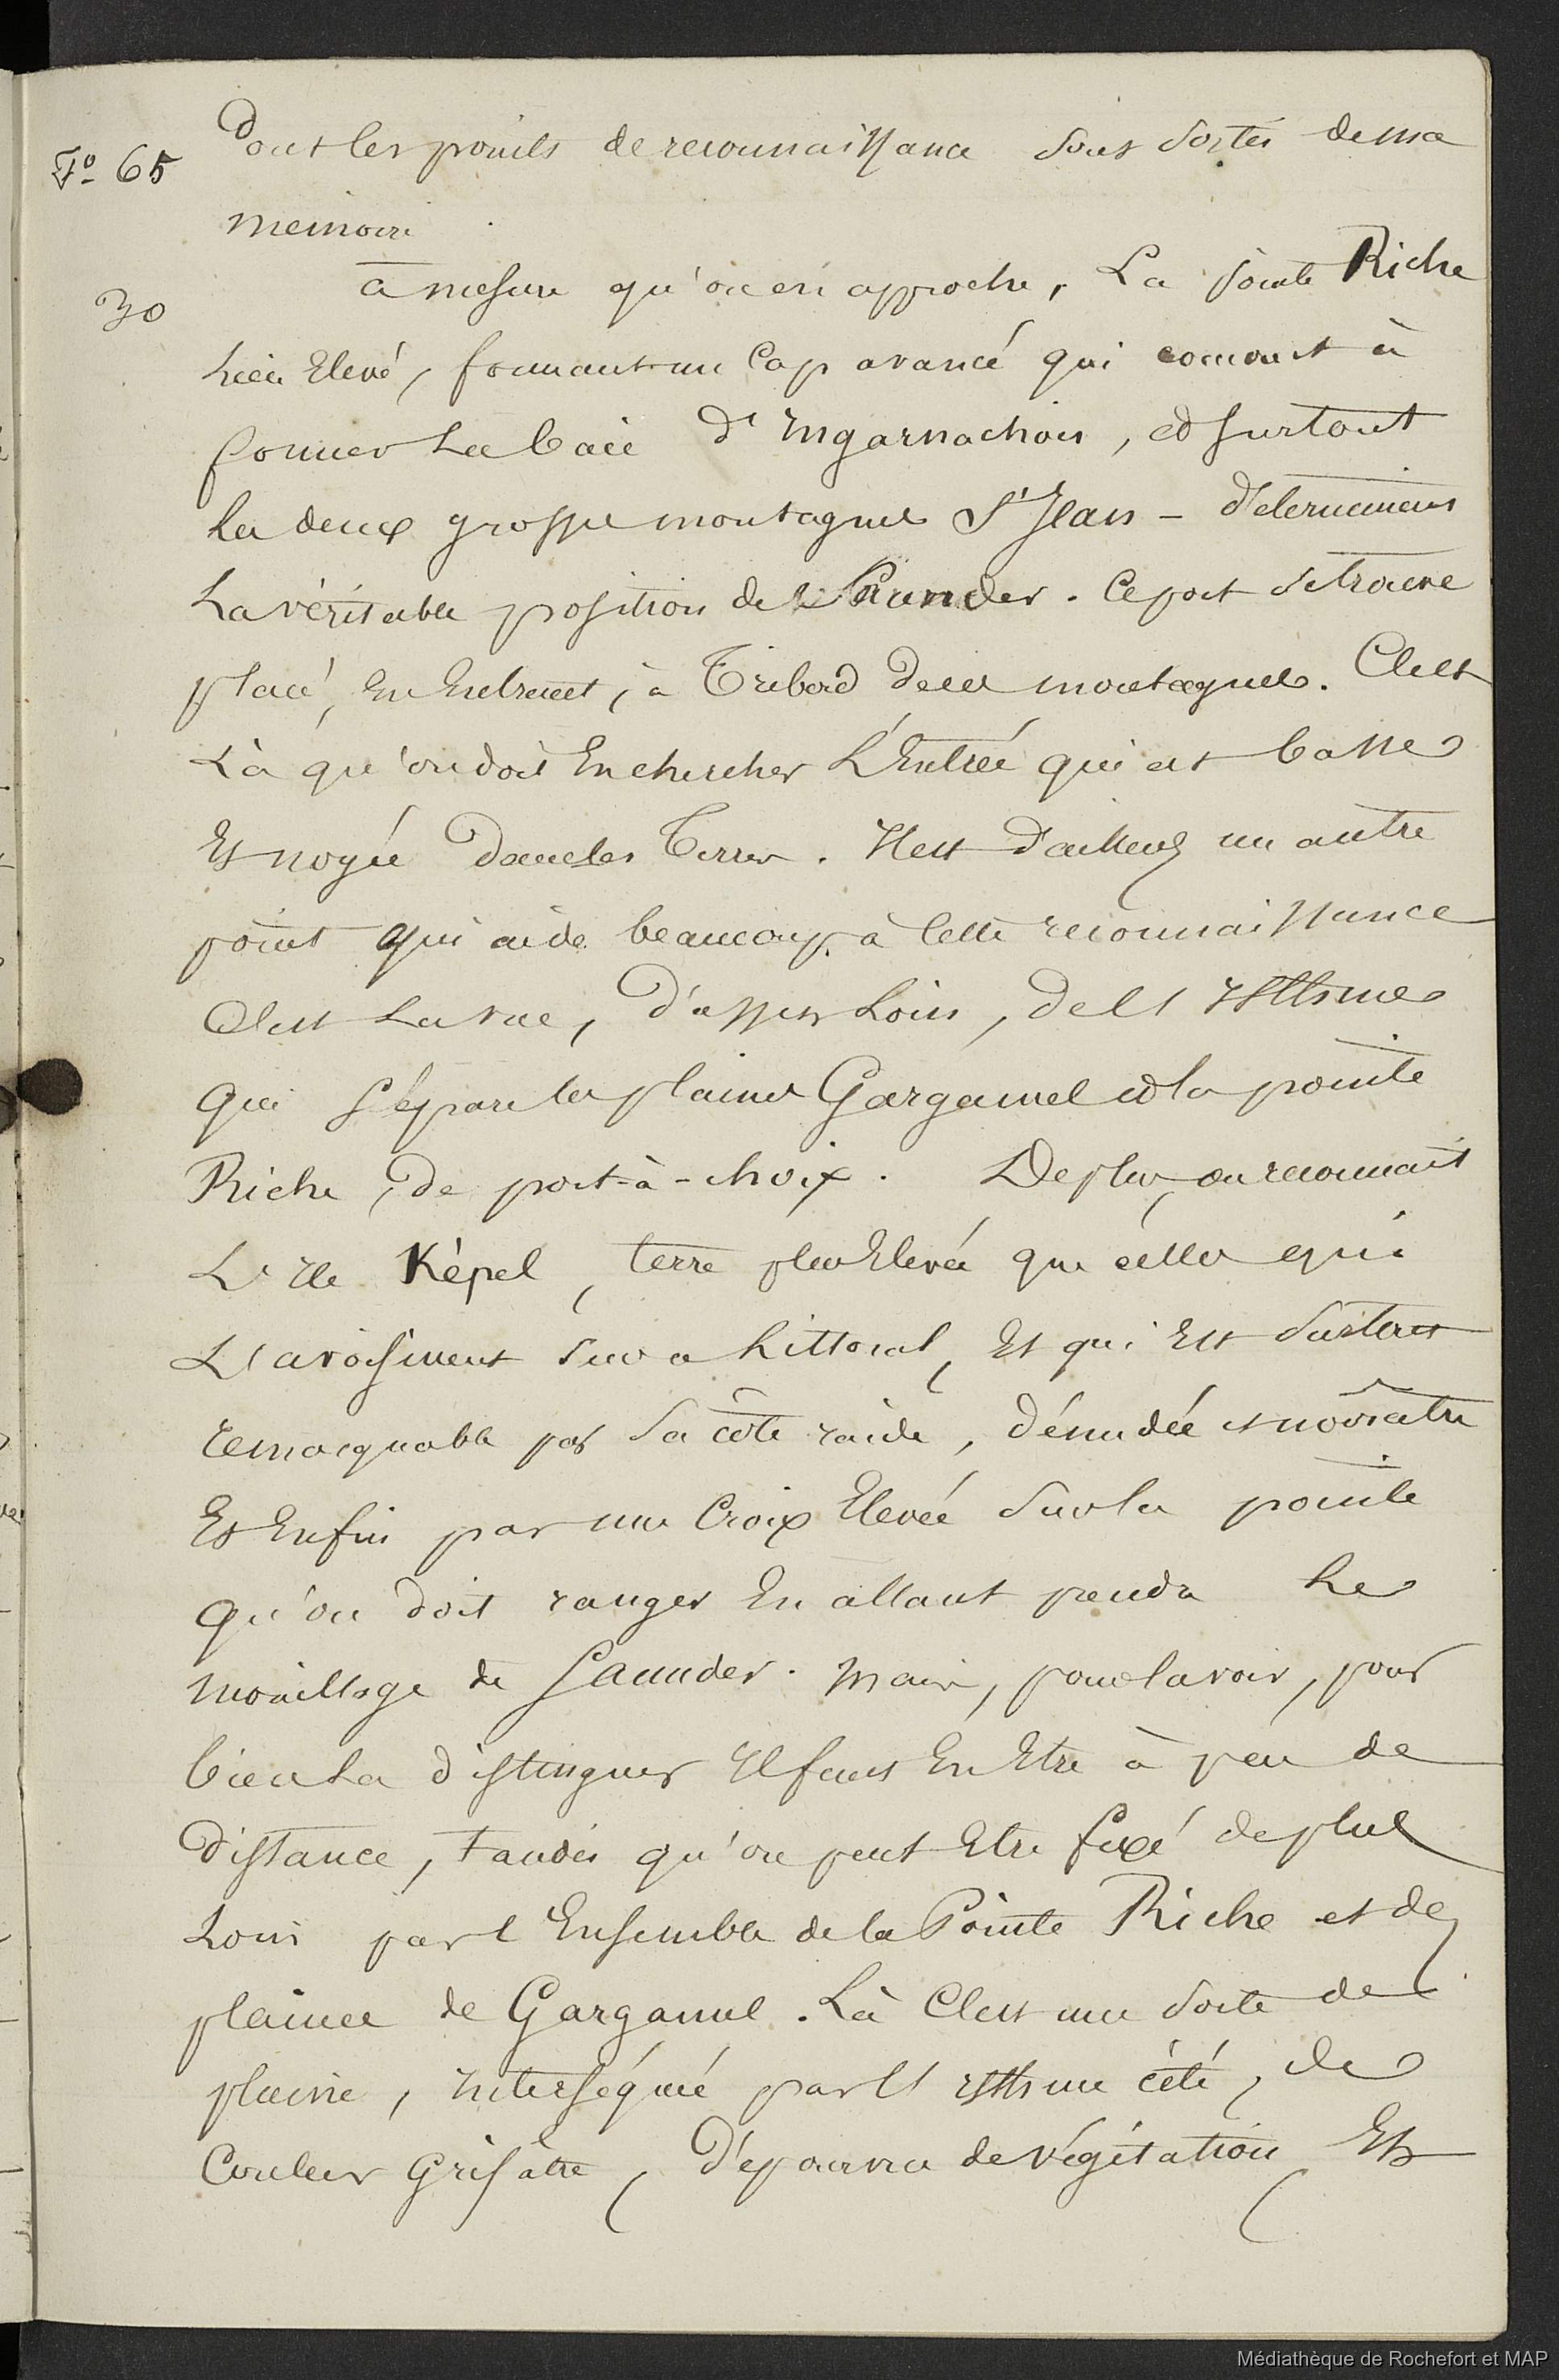 Fo 65
dont les points de reconnaissance sont sortis de ma
memoire
30
à mesure qu'on en approche, La pointe Riche
bien Elevé, formant un Cap avancé qui concourt à
former La baie d'Ingarnachoix, et surtout
les deux grosses montagnes St Jean - déterminent
La véritable position de Saunders. Ce port se trouve
placé, En Entrant, à Tribord de ces montagnes. C'est
Là qu'on doit En chercher L'Entrée qui est basse
Et noyée dans les Terres. Il est d'ailleurs un autre
point qui aide beaucoup à Cette reconnaissance
C'est La vue, d'assez Loin, de l'Isthme
qui sépare les plaines Gargamel et la pointe
Riche, de port-à-choix. De plus, on reconnait
L'Ile Képel, terre plus Elevée que celles qui
L'avoisinent sur ce Littoral, Et qui Est surtout
remarquable par sa côte raide, dénudée et noirâtre
Et Enfin par une Croix Elevée sur la pointe
qu'on doit ranger En allant prendre Le
mouillage de Saunders. Mais, pour la voir, pour
bien La distinguer Il faut En Etre à peu de
distance, tandis qu'on peut Etre fixé de plus
Loin par l'Ensemble de la Pointe Riche et des
plaines de Gargamel. Là C'est une sorte de
plaine, interséquée par l'isthme cité, de
Couleur Grisâtre, dépourvu de végétation Et
Médiathèque de Rochefort et MAP